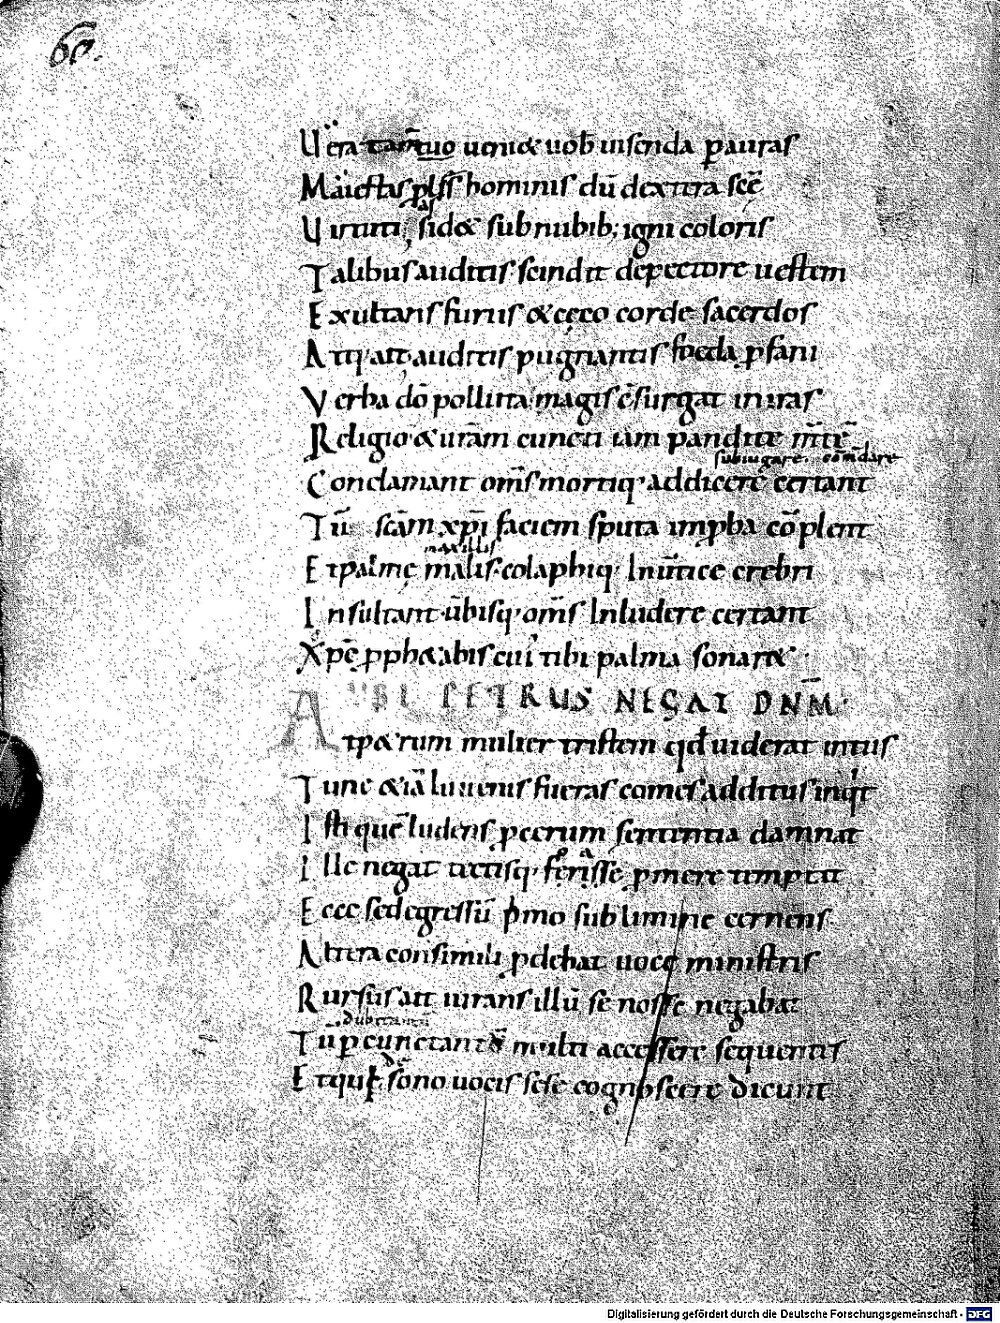 60.
Uera tam̄ tuo ueni& uob̄ inserida pauras
Maiestas pls̄s hominis dū dextera sc̄ē
Uirtutis sid& sub nubib; igni coloris
Talibus auditis scindit de pectore uestem
Exultans furiis & cęco corde sacerdos
Atq; ait, auditis pugnantis foeda p̱fani
Verba dō polluta magis ē̄ surgat in iras
Religio & urām cuncti iam pandite m̄tē
subiugare. com̄dare
Conclamant om̄s mortiq; addicere certant
Tū̄ sc̄am xp̄i faciem sputa imp̱ba cō̄plent
maxillis
Et palmę malis colaphiq; In uū̄tice crebri
Insultant ūbisq; om̄s Inludere certant
Xp̄ē p̱ph&abis cui tibi palma sonar&
UBI PETRUS NEGAT DN̄M.
At p&rum mulier tristem qd̄ uiderat intus
Tunc & iā Iuuenis fueras comes additus inqt
Isti quē ludens p̱cerum sententia damnat
Ille negat tectisq; p̱mere temptat
Ecce sed egressū p̱mo sub limine cernens
Altera consimili p̱debat uoce ministris
Rursus ait iurans illū se nosse negabat
dubitanti
Tū̄ p̱cunctanti multi accessere sequentis
Etique sono uocis sese cognoscere dicunt
Digitalisierung gefördert durch die Deutsche Forschungsgemeinschaft - DFG